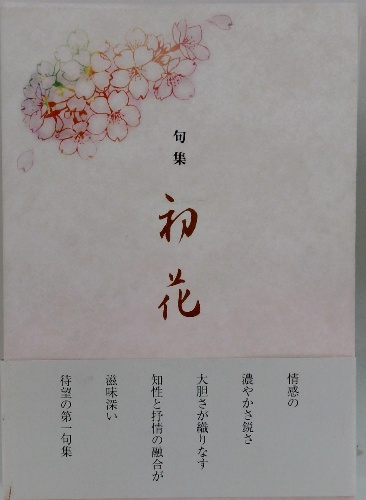 句集
初花
情感の
濃やかさ鋭さ
大胆さが織りなす
知性と抒情の融合が
滋味深い
待望の第一句集